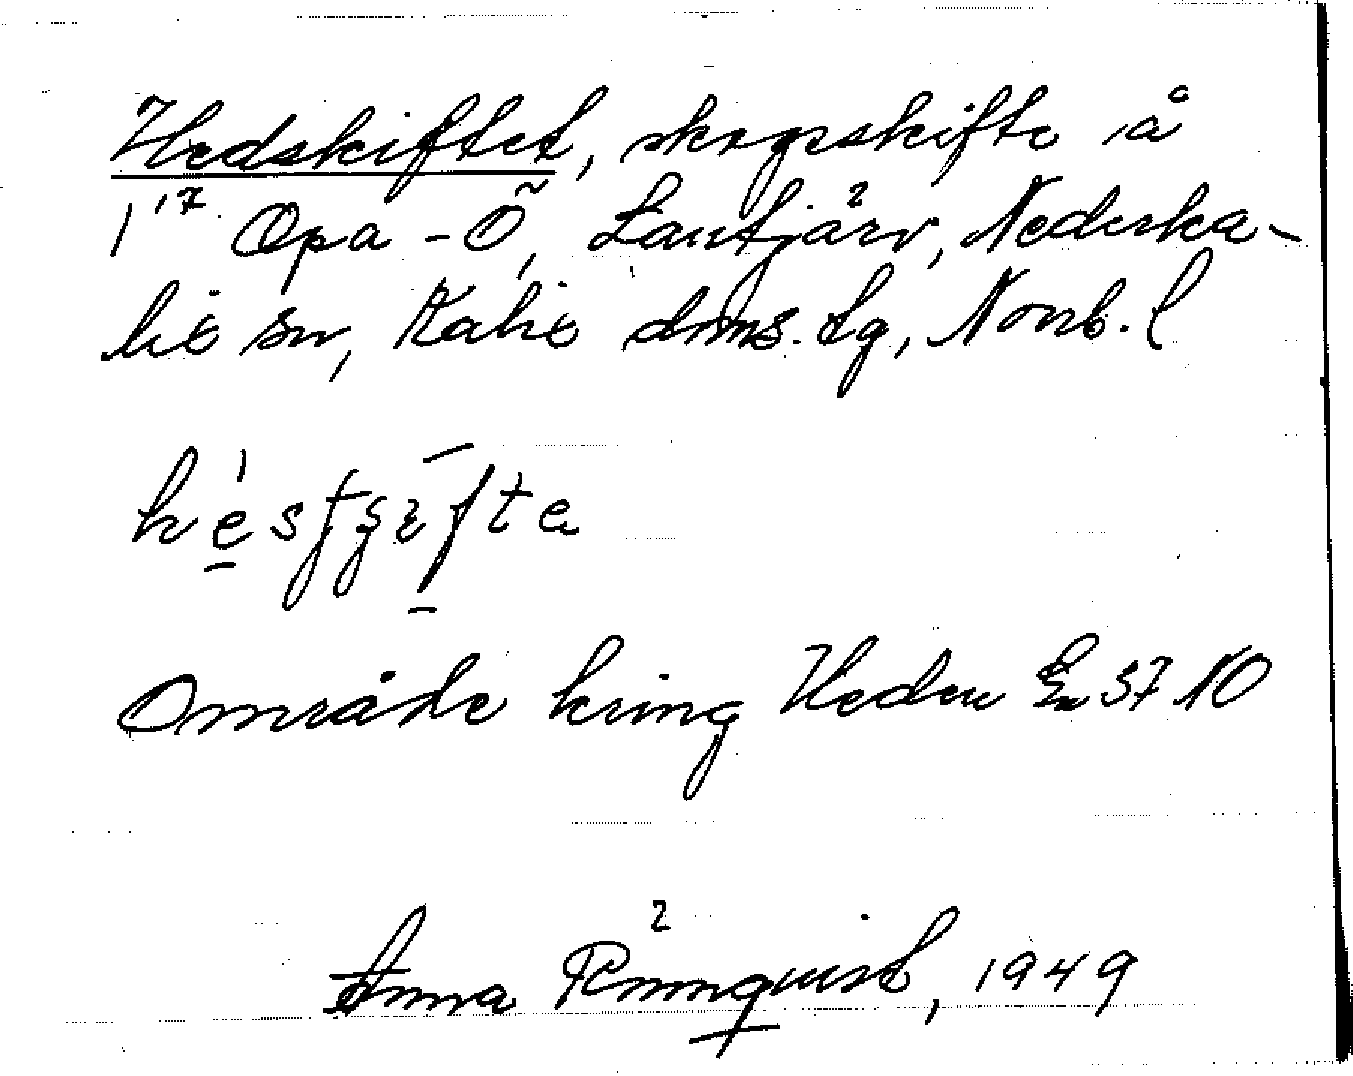 Hedskiftet, skogsskifte å
1¹⁷ Opa-Ö, Lantjärv, Nederka-
lix sn, Kalix dms. tg, Norrb. l
Område kring Heden Ek 37 NO
Anna Rönnquist, 1949